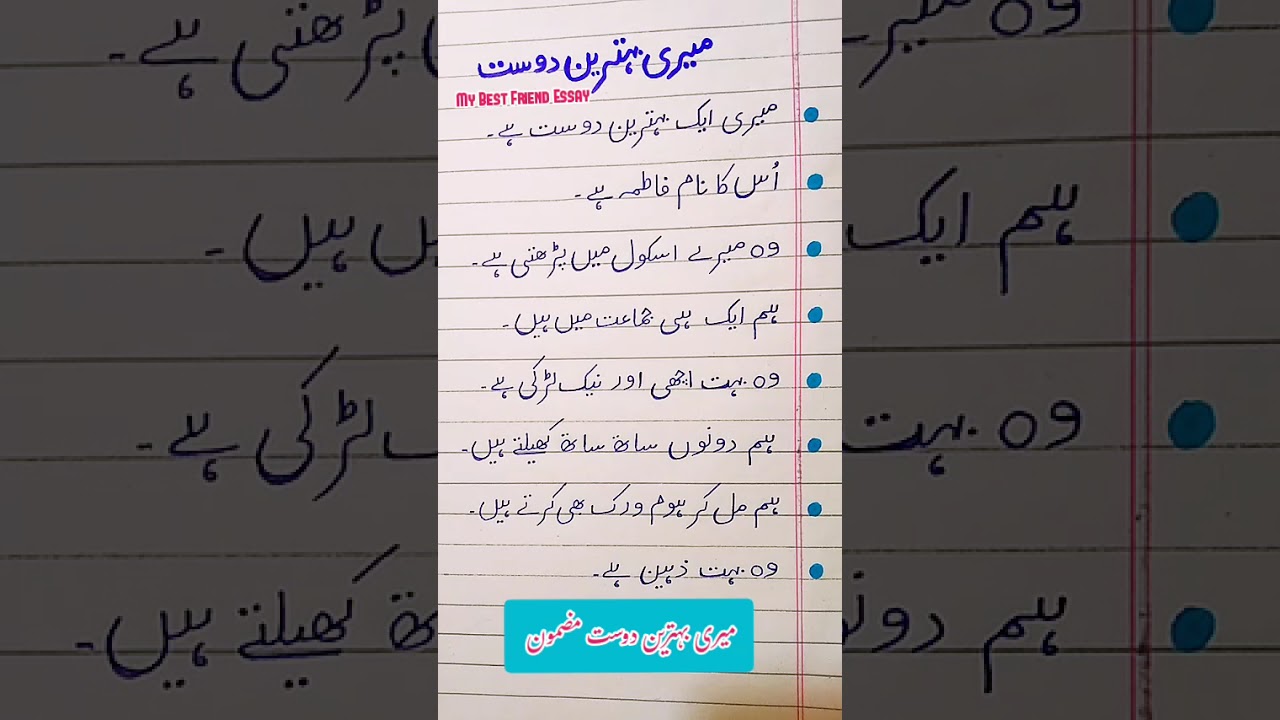 میری بہترین دوست
My Best Friend Essay
میری ایک بہترین دوست ہے۔
اُس کا نام فاطمہ ہے۔
وہ میرے اسکول میں پڑھتی ہے۔
ہم ایک ہی جماعت میں ہیں۔
وہ بہت اچھی اور نیک لڑکی ہے۔
ہم دونوں ساتھ ساتھ کھیلتے ہیں۔
ہم مل کر ہوم ورک بھی کرتے ہیں۔
وہ بہت ذہین ہے۔
میری بہترین دوست مضمون